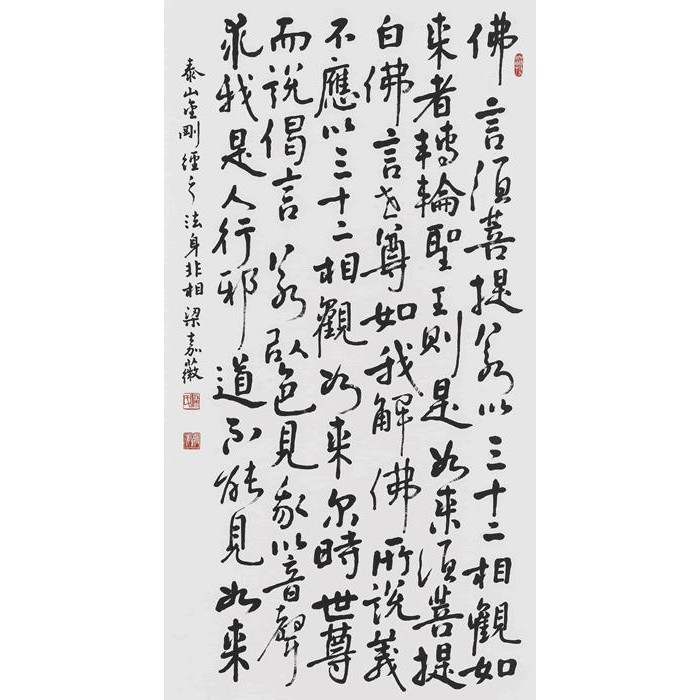 佛言須菩提若以三十二相觀如
来者轉輪聖王則是如来須菩提
白佛言世尊如我解佛所說義
不應以三十二相觀如来尔時世尊
而說偈言若以色見我以音聲
求我是人行邪道不能見如来
泰山金剛經之法身非相 梁嘉薇